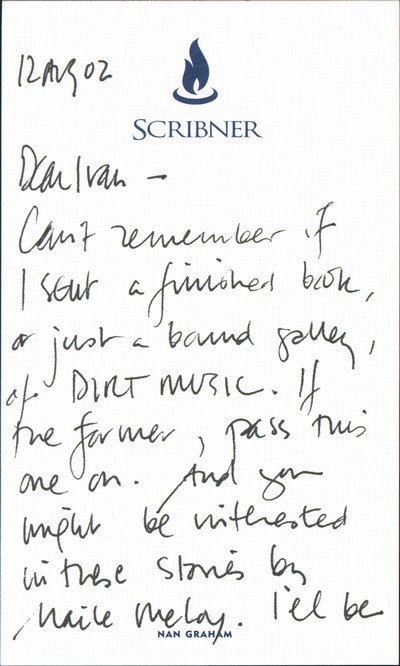 12 AUG 02
SCRIBNER
Dear Ivan —
Can't remember if
I sent a finished book,
or just a bound galley,
of DIRT MUSIC. If
the former, pass this
one on. And you
might be interested
in these stories by
Maile Meloy. I'll be
NAN GRAHAM